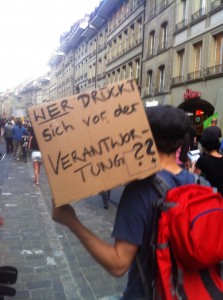 WER DRÜCKT
sich vor der
VERANTWOR-
TUNG ??